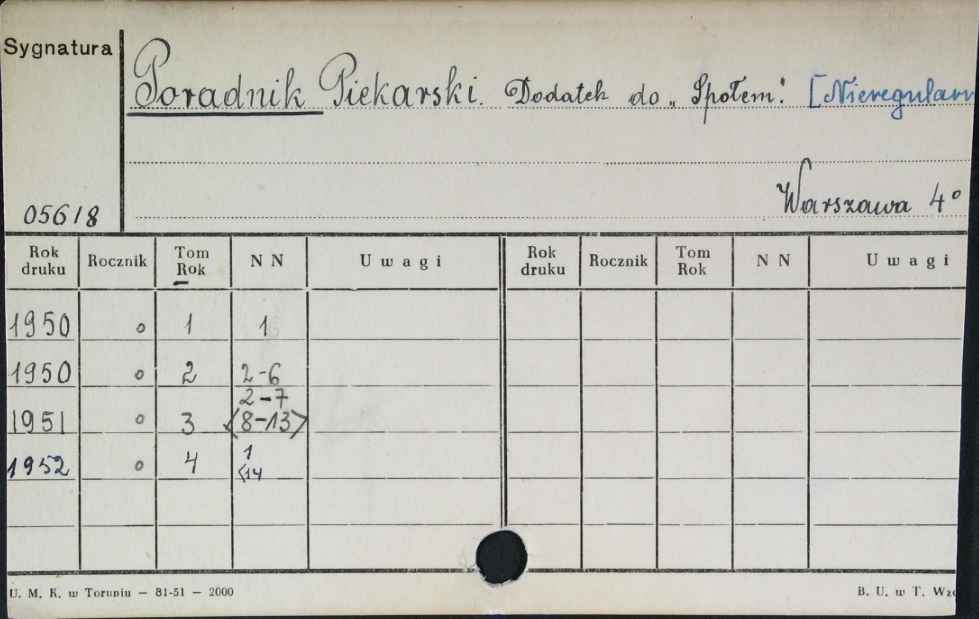 Sygnatura
Poradnik Piekarski. Dodatek do „Społem". [Nieregularn
Warszawa 4°
05618
Rok druku Rocznik Tom Rok NN Uwagi Rok druku Rocznik Tom Rok NN Uwagi
1950 o 1 1
1950 o 2 2-6
2-7
1951 o 3 <8-13>
1952 o 4 1
<14
U. M. K. w Toruniu — 81-51 — 2000 B. U. w T.